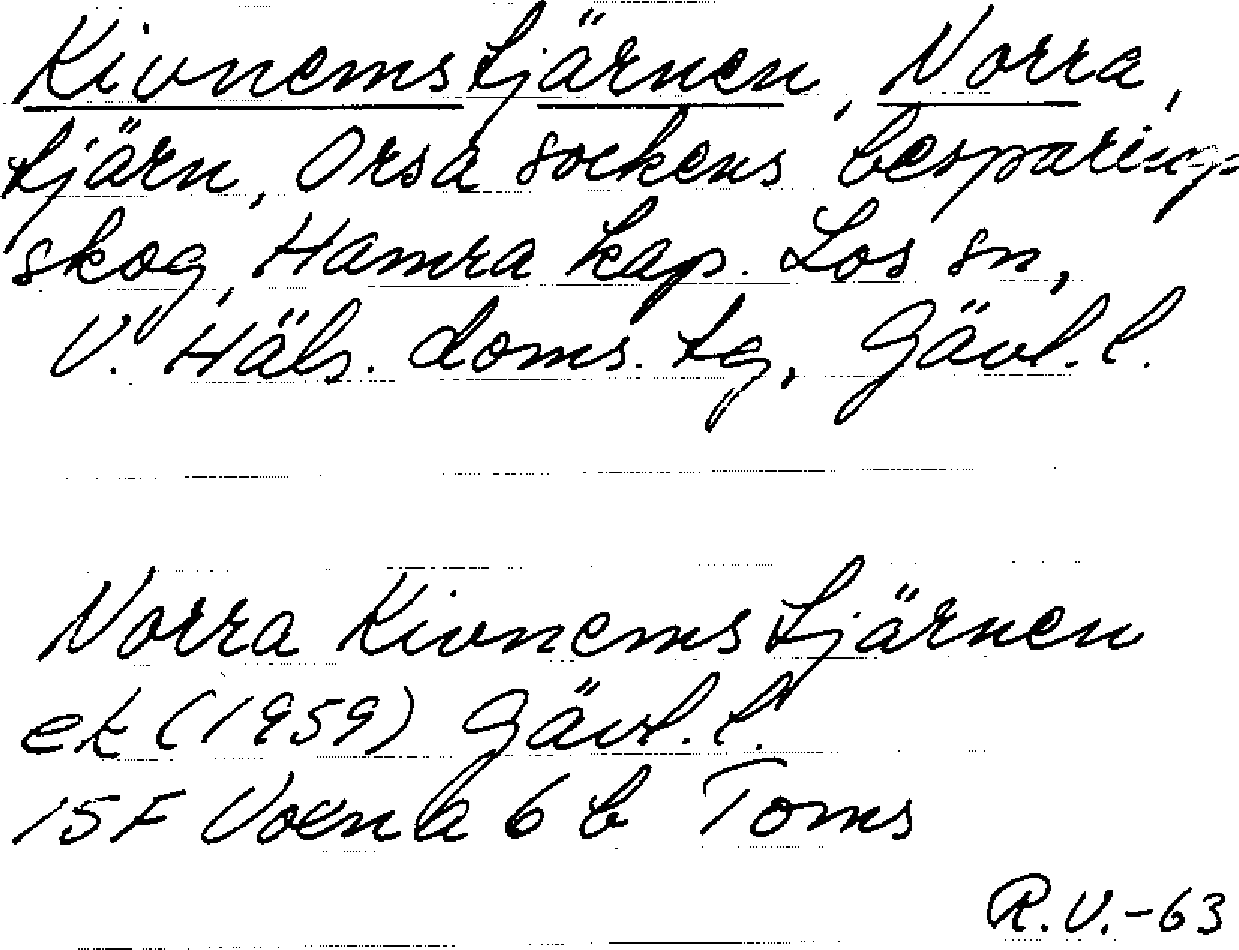 Kivnemstjärnen, Norra,
tjärn, Orsa sockens besparings-
skog, Hamra kap. Los sn,
V. Häls. doms. tg, Gävl. l.
Norra Kivnemstjärnen
ek (1959) Gävl. l.
15F Voxna 6 b Toms
R.V.-63